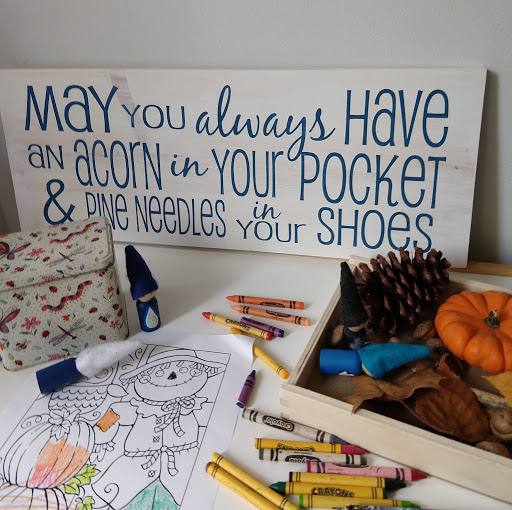 MAY YOU always HAVE
AN ACORN in YOUR POCKET
& PINE NEEDLES in YOUR SHOES
CRAYOLA